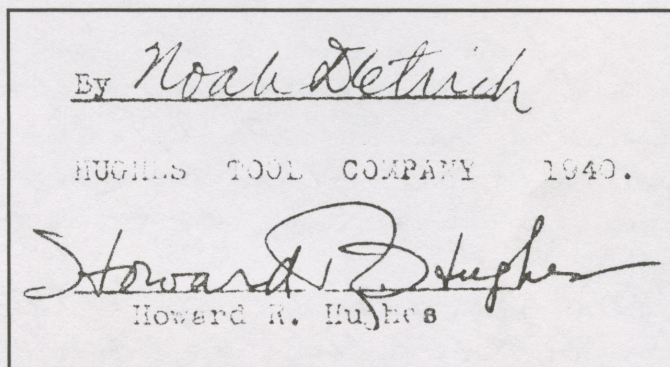 By Noah Dietrich
HUGHES TOOL COMPANY 1940.
Howard R. Hughes
Howard R. Hughes